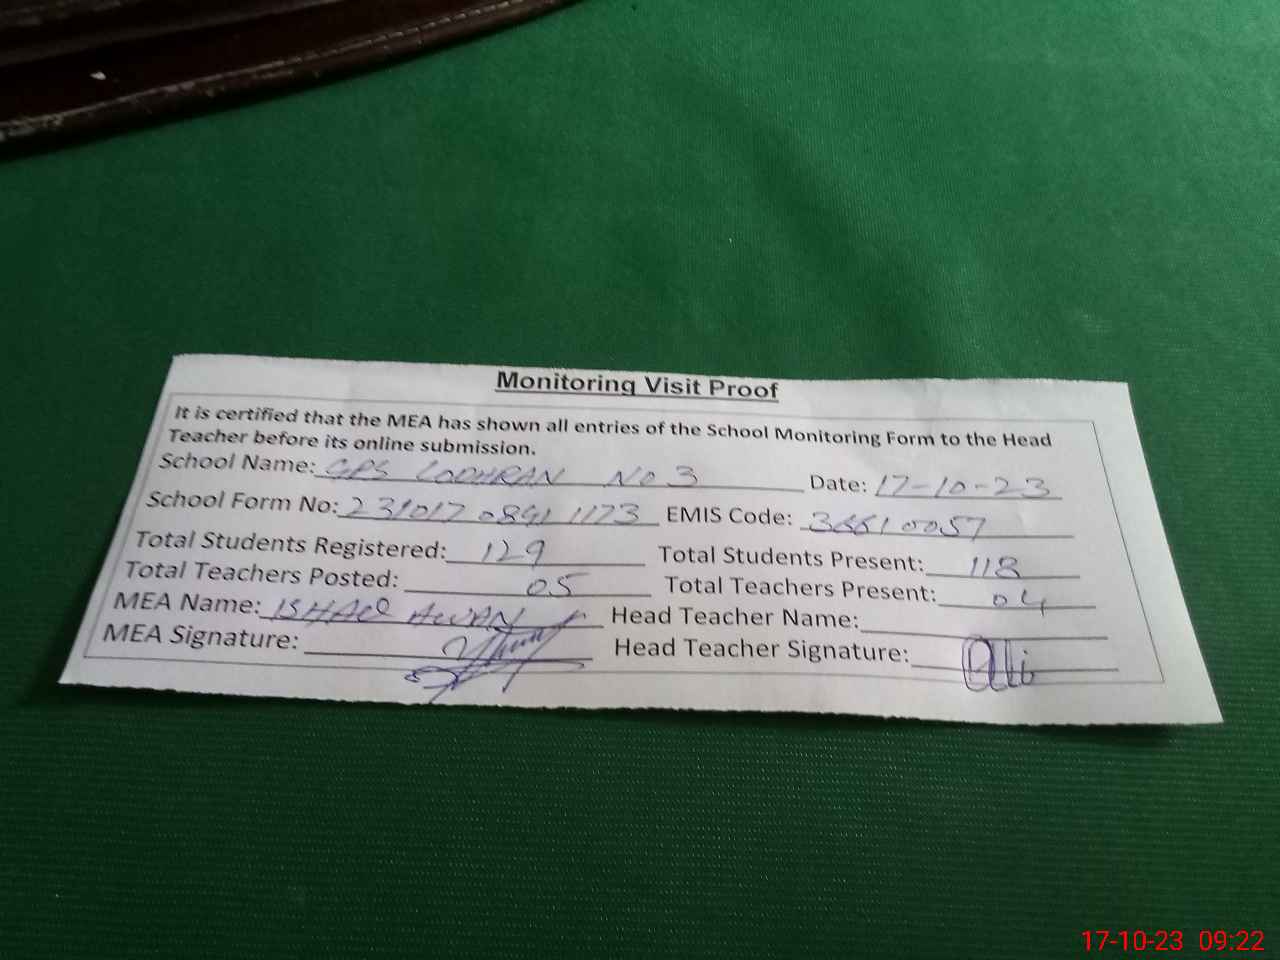 Monitoring Visit Proof
It is certified that the MEA has shown all entries of the School Monitoring Form to the Head
Teacher before its online submission.
School Name: GPS LODHRAN No 3 Date: 17-10-23
School Form No: 231017 0841 1173 EMIS Code: 36610057
Total Students Registered: 129 Total Students Present: 118
Total Teachers Posted: 05 Total Teachers Present: 04
MEA Name: ISHAQ AWAN Head Teacher Name:
MEA Signature: Head Teacher Signature:
17-10-23 09:22